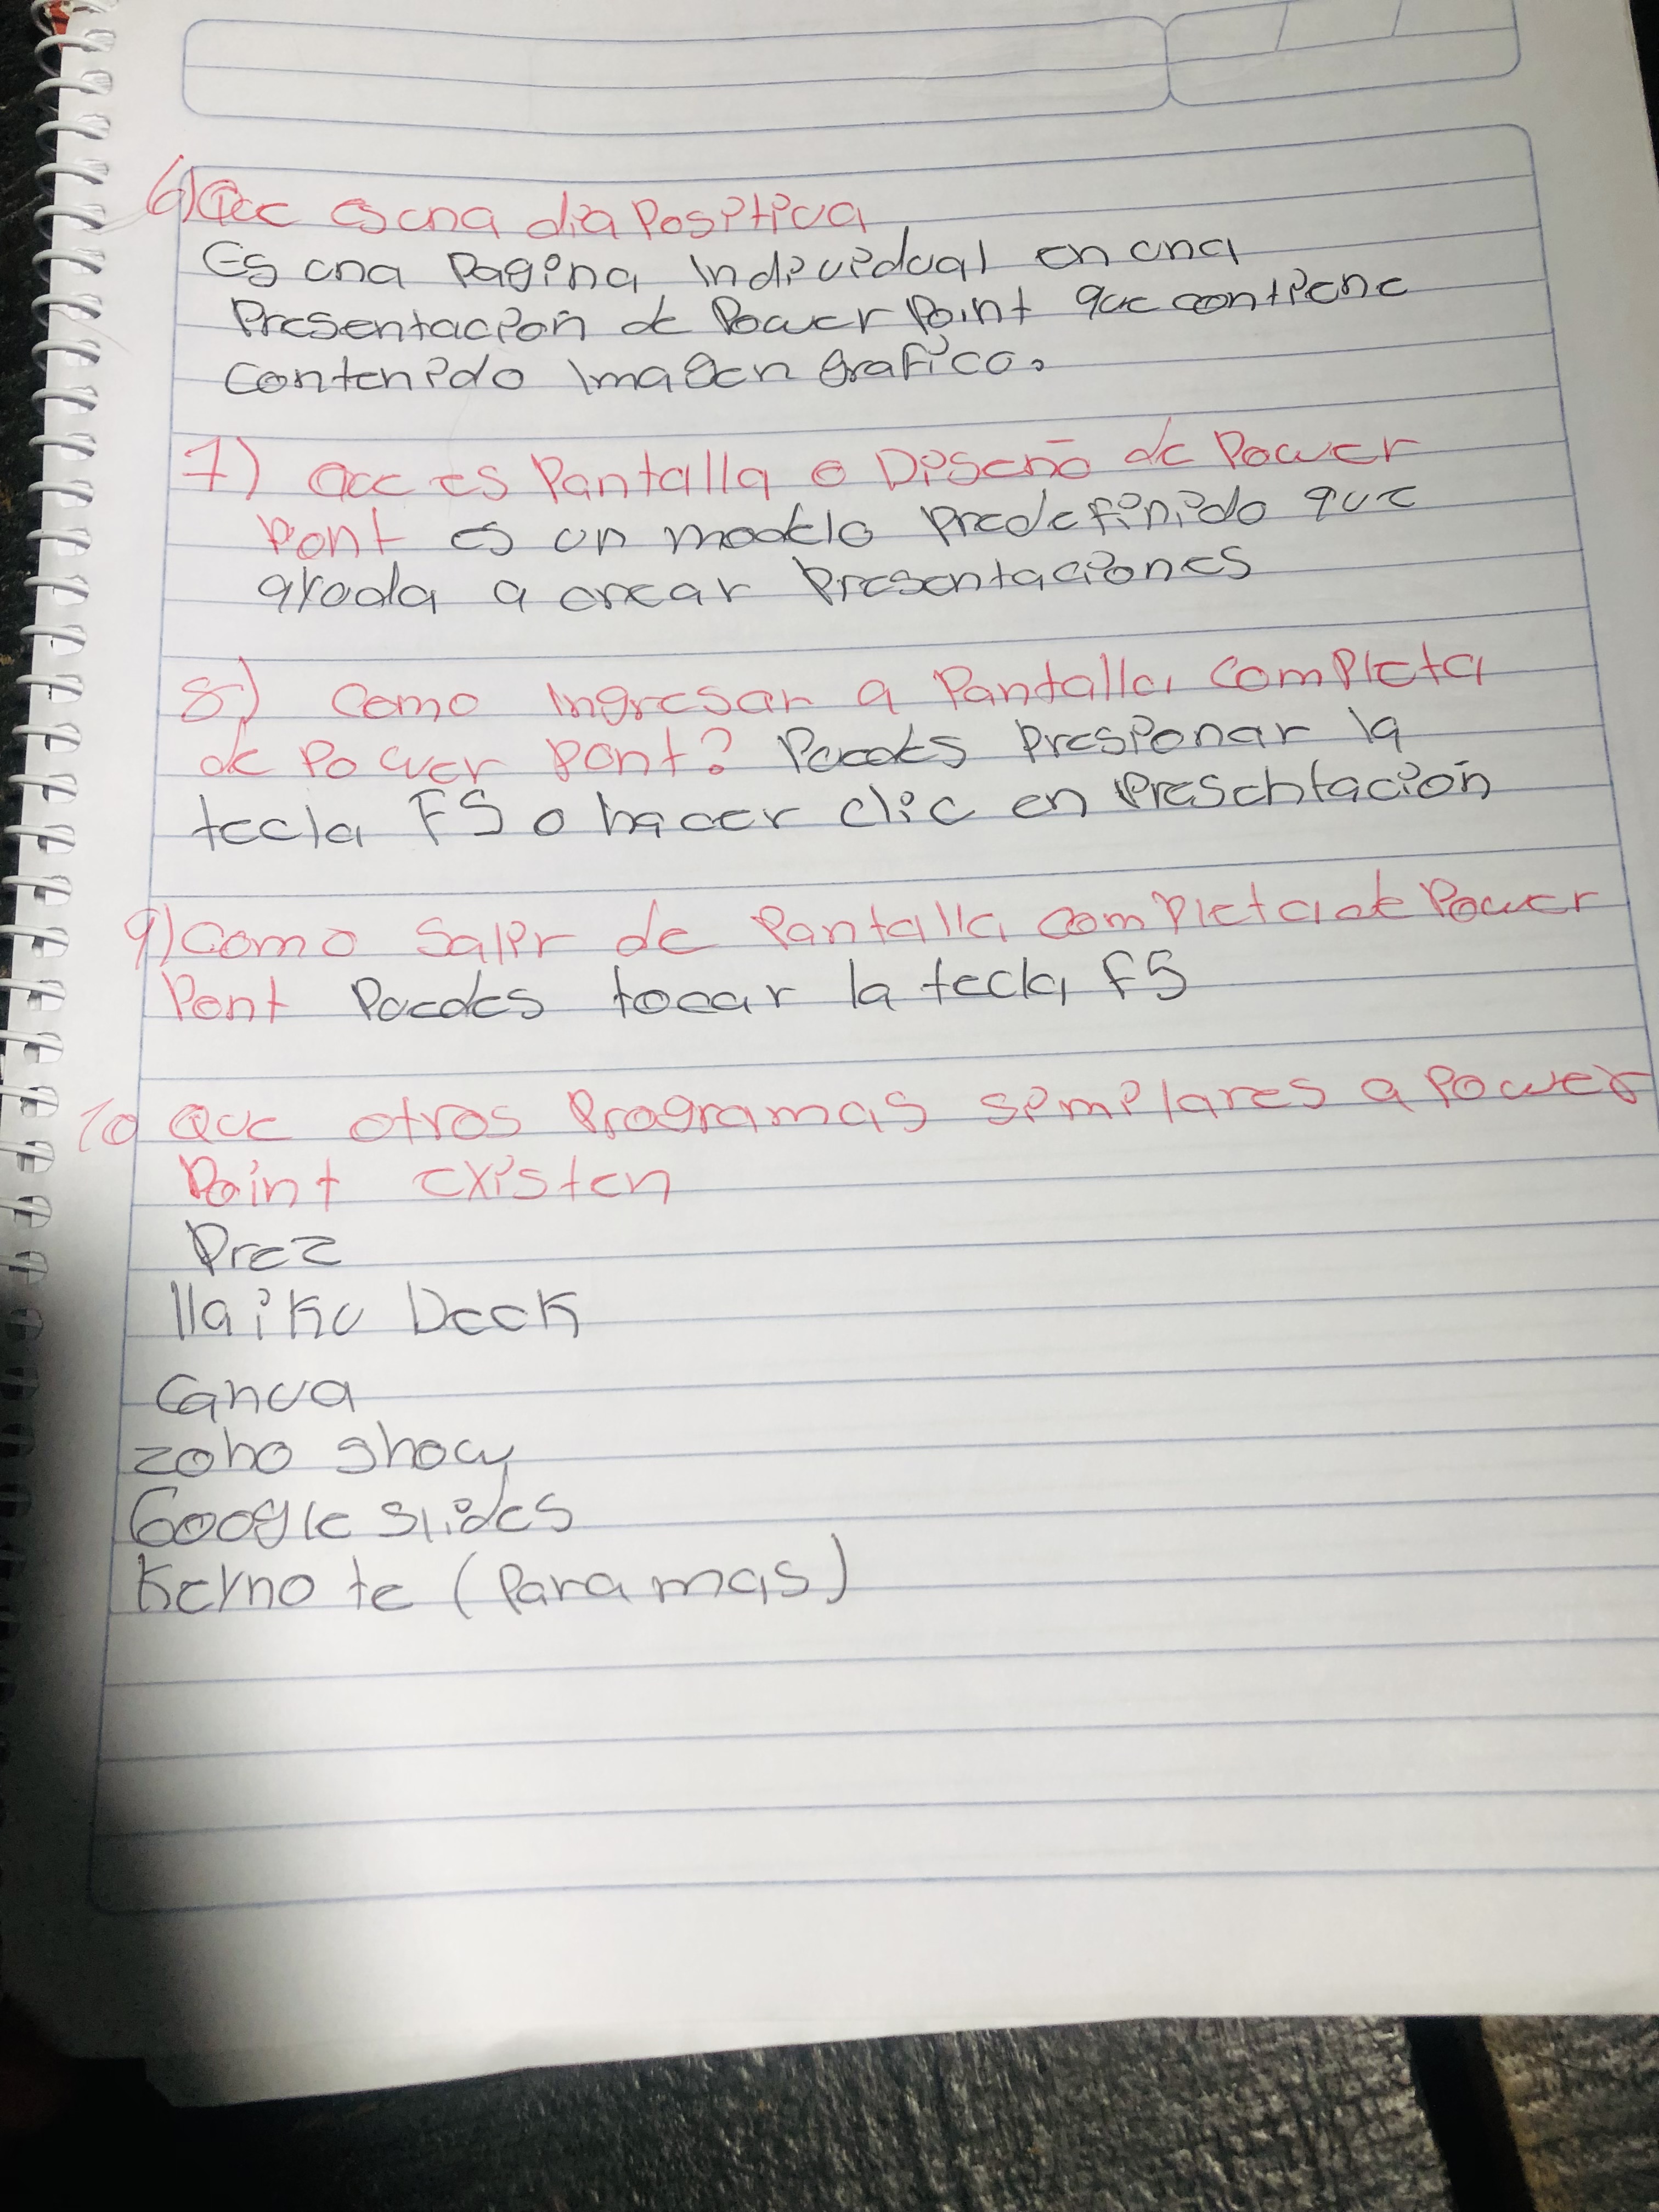 6) Que es una diapositiva
Es una Pagina individual en una
Presentación de PowerPoint que contiene
contenido imagen grafico.
7) Que es Pantalla o Diseño de Power
Pont es un modelo predefinido que
ayuda a crear Presentaciones
8) como ingresar a Pantalla completa
de Power Pont? Puedes presponar la
tecla F5 o hacer clic en Presentación
9) como salir de Pantalla completa de Power
Pont Puedes tocar la tecla F5
10 Que otros Programas similares a Power
Point existen
Prez
Haiku Deck
Canva
Zoho show
Google Slides
Keynote (Para mas)